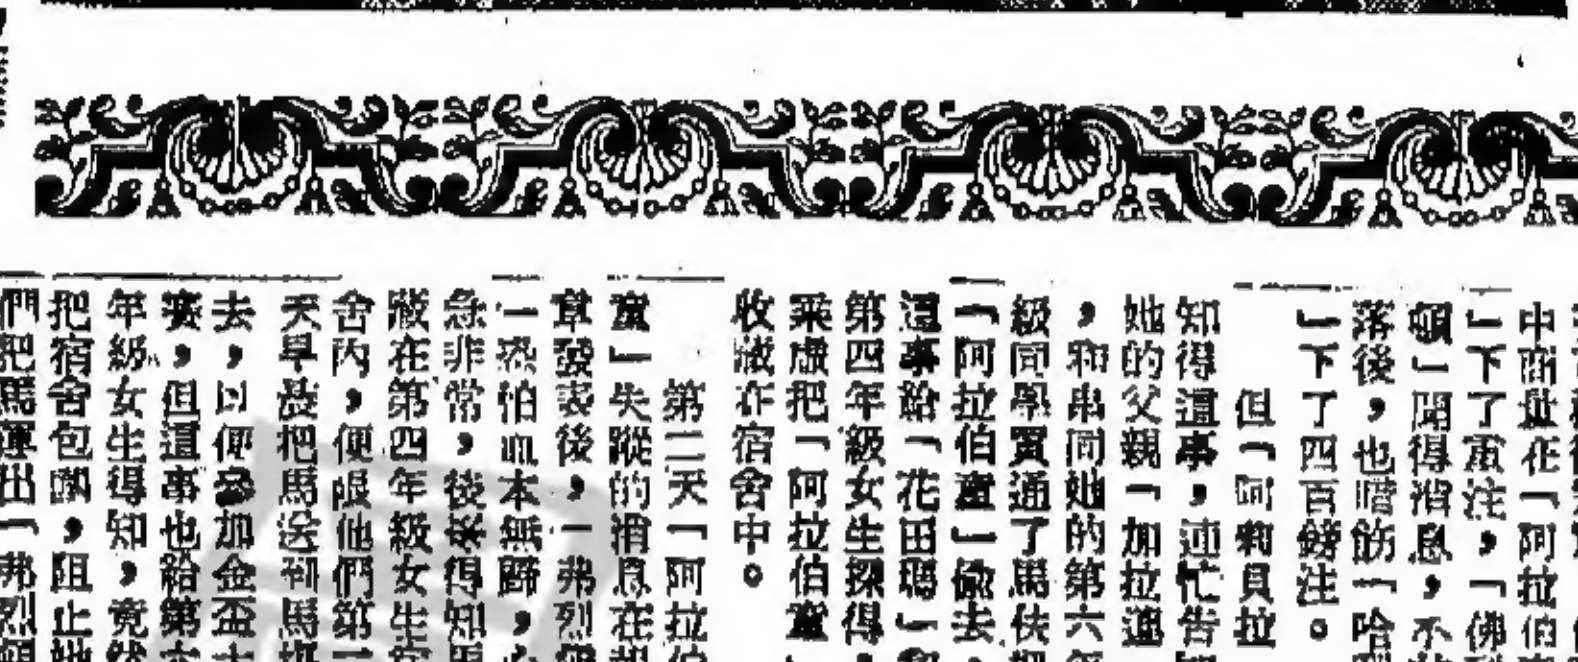 中商量在「阿拉伯
」下了重注，「佛
頓」聞得消息，不
落後，也暗飭「哈
」下了四百鎊注。
但「阿莉貝拉
知得這事，連忙告
她的父親「加拉達
，和串同她的第六
級同學買通了馬伕
「阿拉伯童」偷去，
這事給「花田瑪」
第四年級女生探得，
乘虛把「阿拉伯童」
收藏在宿舍中。
第二天「阿拉伯
童」失蹤的消息在
章發表後，「弗烈
」恐怕血本無歸，
急非常，後來得知馬
藏在第四年級女生宿
舍內，便限他們第二
天早晨把馬送到馬
去，以便參加金盃大
賽，但這事也給第六
年級女生得知，竟然
把宿舍包圍，阻止她
們把馬運出「弗烈頓